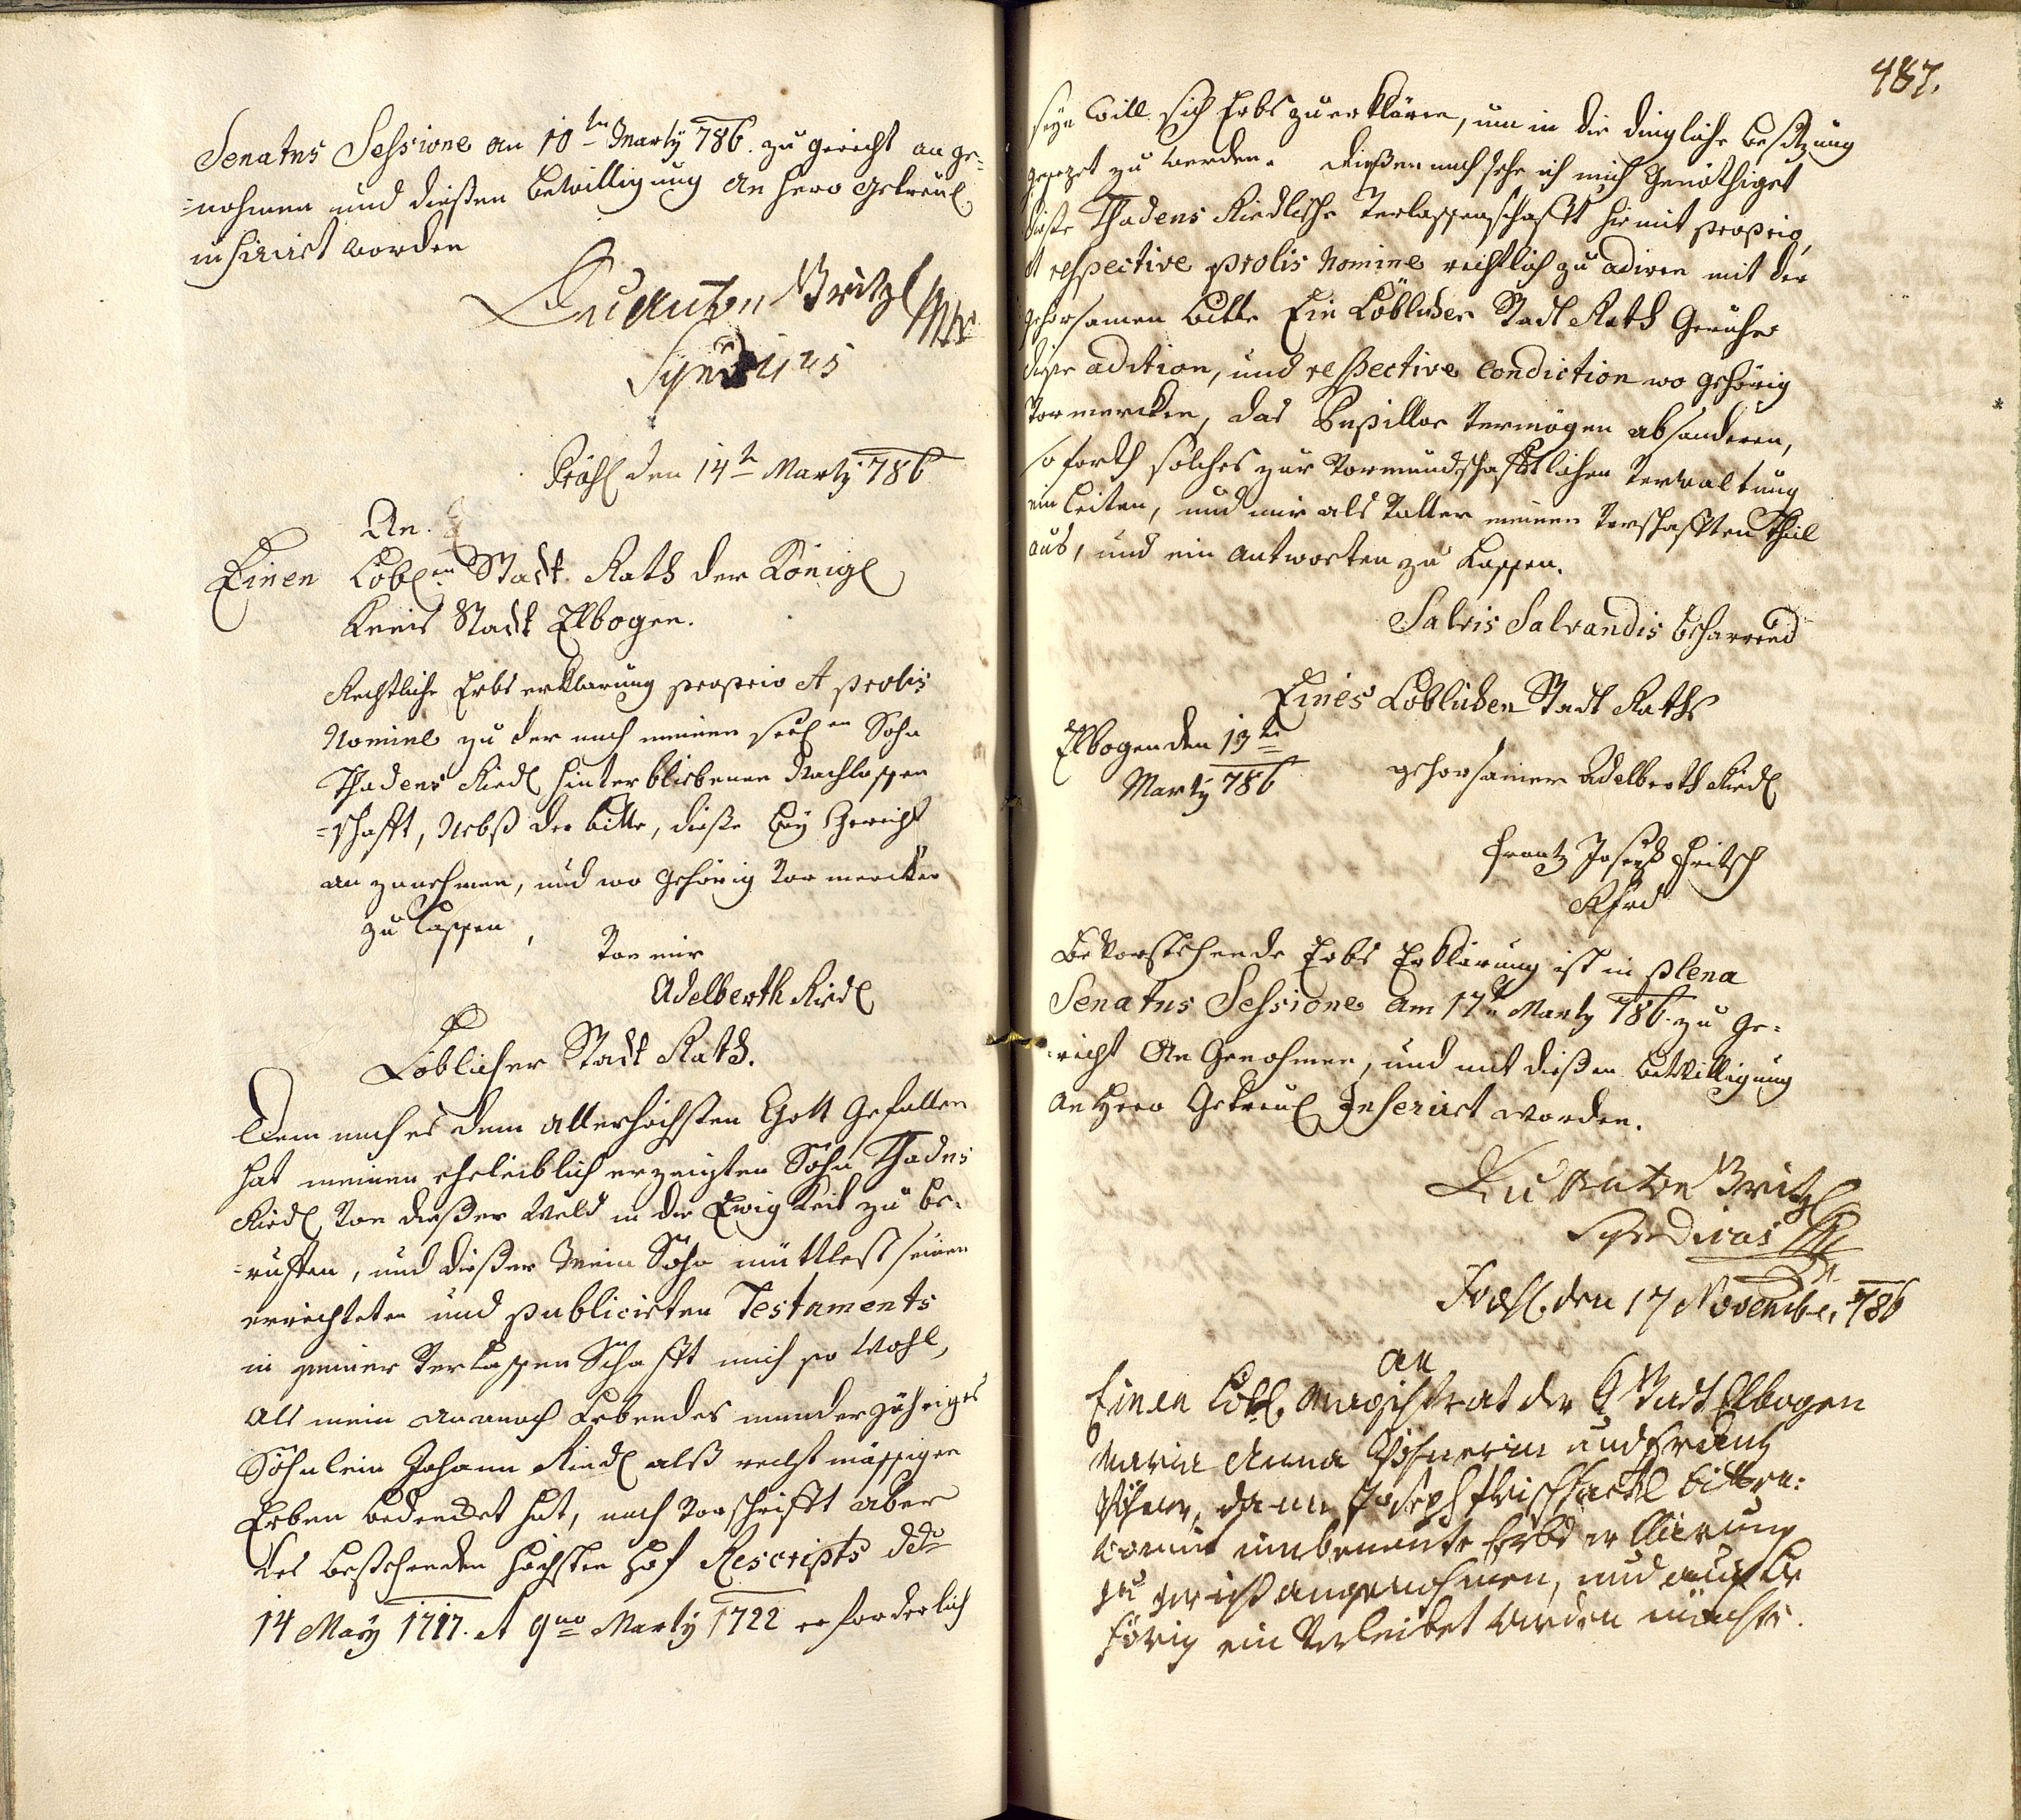 Senatus Sessione an 10ten Marty 786. zu gericht an ge=
=nohmen und diesen bewilligung an hero getreul
inseriret worden
Britzl
Syndicus
Präs den 14te Martz 786
An
Einen Löblen Stadt Rath der Königl
Kreis Stadt Elbogen.
Rechtliche Erbs erklärung proprio et prolis
Nomine zu der nach meinen seelen Sohn
Thadeus Riedl hinterbliebenen Nachlassen
=schafft, Nebst der bitte, diese bey Gericht
an zunehmen, und wo gehörig vor mercken
zu lassen,
Von mir
Adelberth Riedl
Löblicher Stadt Rath.
Dem nach es dem allerhöchsten Gott Gefallen
hat meinen eheleiblich erzeugten Sohn Thadeus
Riedl von dießer Weld in die Ewigkeit zu be=
=ruffen, und dießer Mein Sohn mittlest seinen
errichteten und publicirten Testaments
in seiner Verlassenschafft mich so Wohl,
als mein annoch Lebendes minderjähriges
Söhnlein Johann Riedl alß rechtmässigen
Erben bedencket hat, nach Vorschrifft aber
des bestehenden höchsten Hof Rescripts ddo
14 May 1717. et 9no Marty 1722 erforderlich
487.
seyn will sich Erbs zu erklären, um in die dingliche besitzung
gesezet zu werden. Diesennach sehe ich mich Genöthiget
diese Thadeus Riedlische Verlassenschafft hiemit proprio,
et respective prolis Nomine rechtlich zu adiren mit der
gehorsamen bitte Ein Löblicher Stadt Rath Geruhe
diese adition, und respective Condiction wo gehörig
Vormercken, das Pupillar Vermögen absonderen,
so forth solches zur Vormundschafftlichen Verwaltung
einleiten, und mir als Vatter meinen Vorschafften Theil
aus, und ein antworten zu lassen.
Salvis Salvandis beharrend
Eines Löblichen Stadt Raths
Elbogen den 13te
Marty 786
gehorsamer Adelberth Riedl
Frantz Joseph Fritsch
Bevorstehende Erbs Erklärung ist in plena
Senatus Sessione am 17te Martz 786. zu Ge=
=richt An Genohmen, und mit dießen bewilligung
an Hero Getreul Inseriret worden.
Britzl
Syndicus
Präs. den 17 November 786
an
Einen Löbl. Magistrat der Stadt Elbogen
Maria Anna und Frantz
dann Joseph bitten:
womit umbenante Erbs erklärung
zu gericht angenohmen, und auch be
hörig ein Verleibet werden möchte.